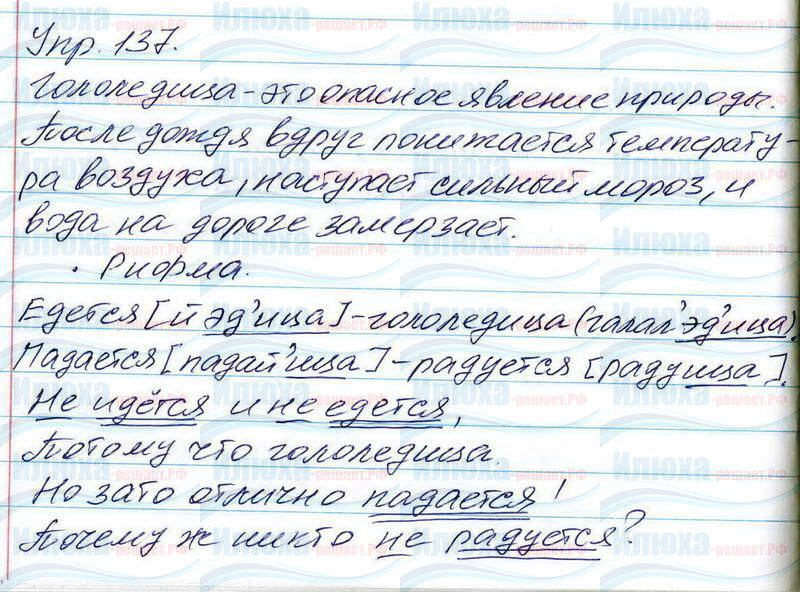 Упр. 137.
Гололедица - это опасное явление природы.
После дождя вдруг понижается температу-
ра воздуха, наступает сильный мороз, и
вода на дороге замерзает.
· Рифма.
Едется [й эд'ица] - гололедица (галал'эд'ица).
Падается [падай'ица] - радуется [радуица].
Не идётся и не едется,
Потому что гололедица.
Но зато отлично падается!
Почему ж никто не радуется?